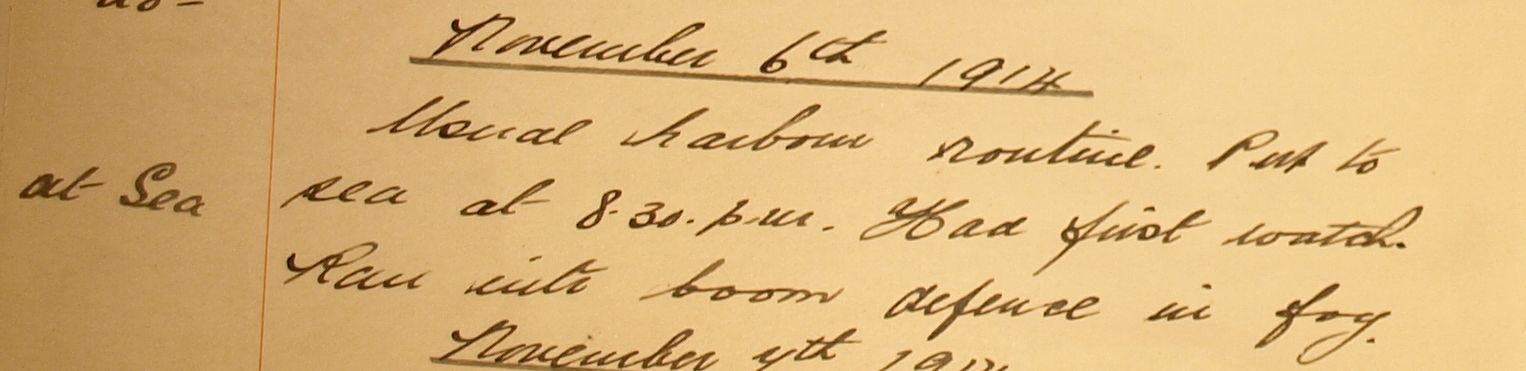 November 6th 1914
Usual harbour routine. Put to
at Sea sea at 8.30. p.m. Had first watch.
Ran into boom defence in fog.
November 7th 1914